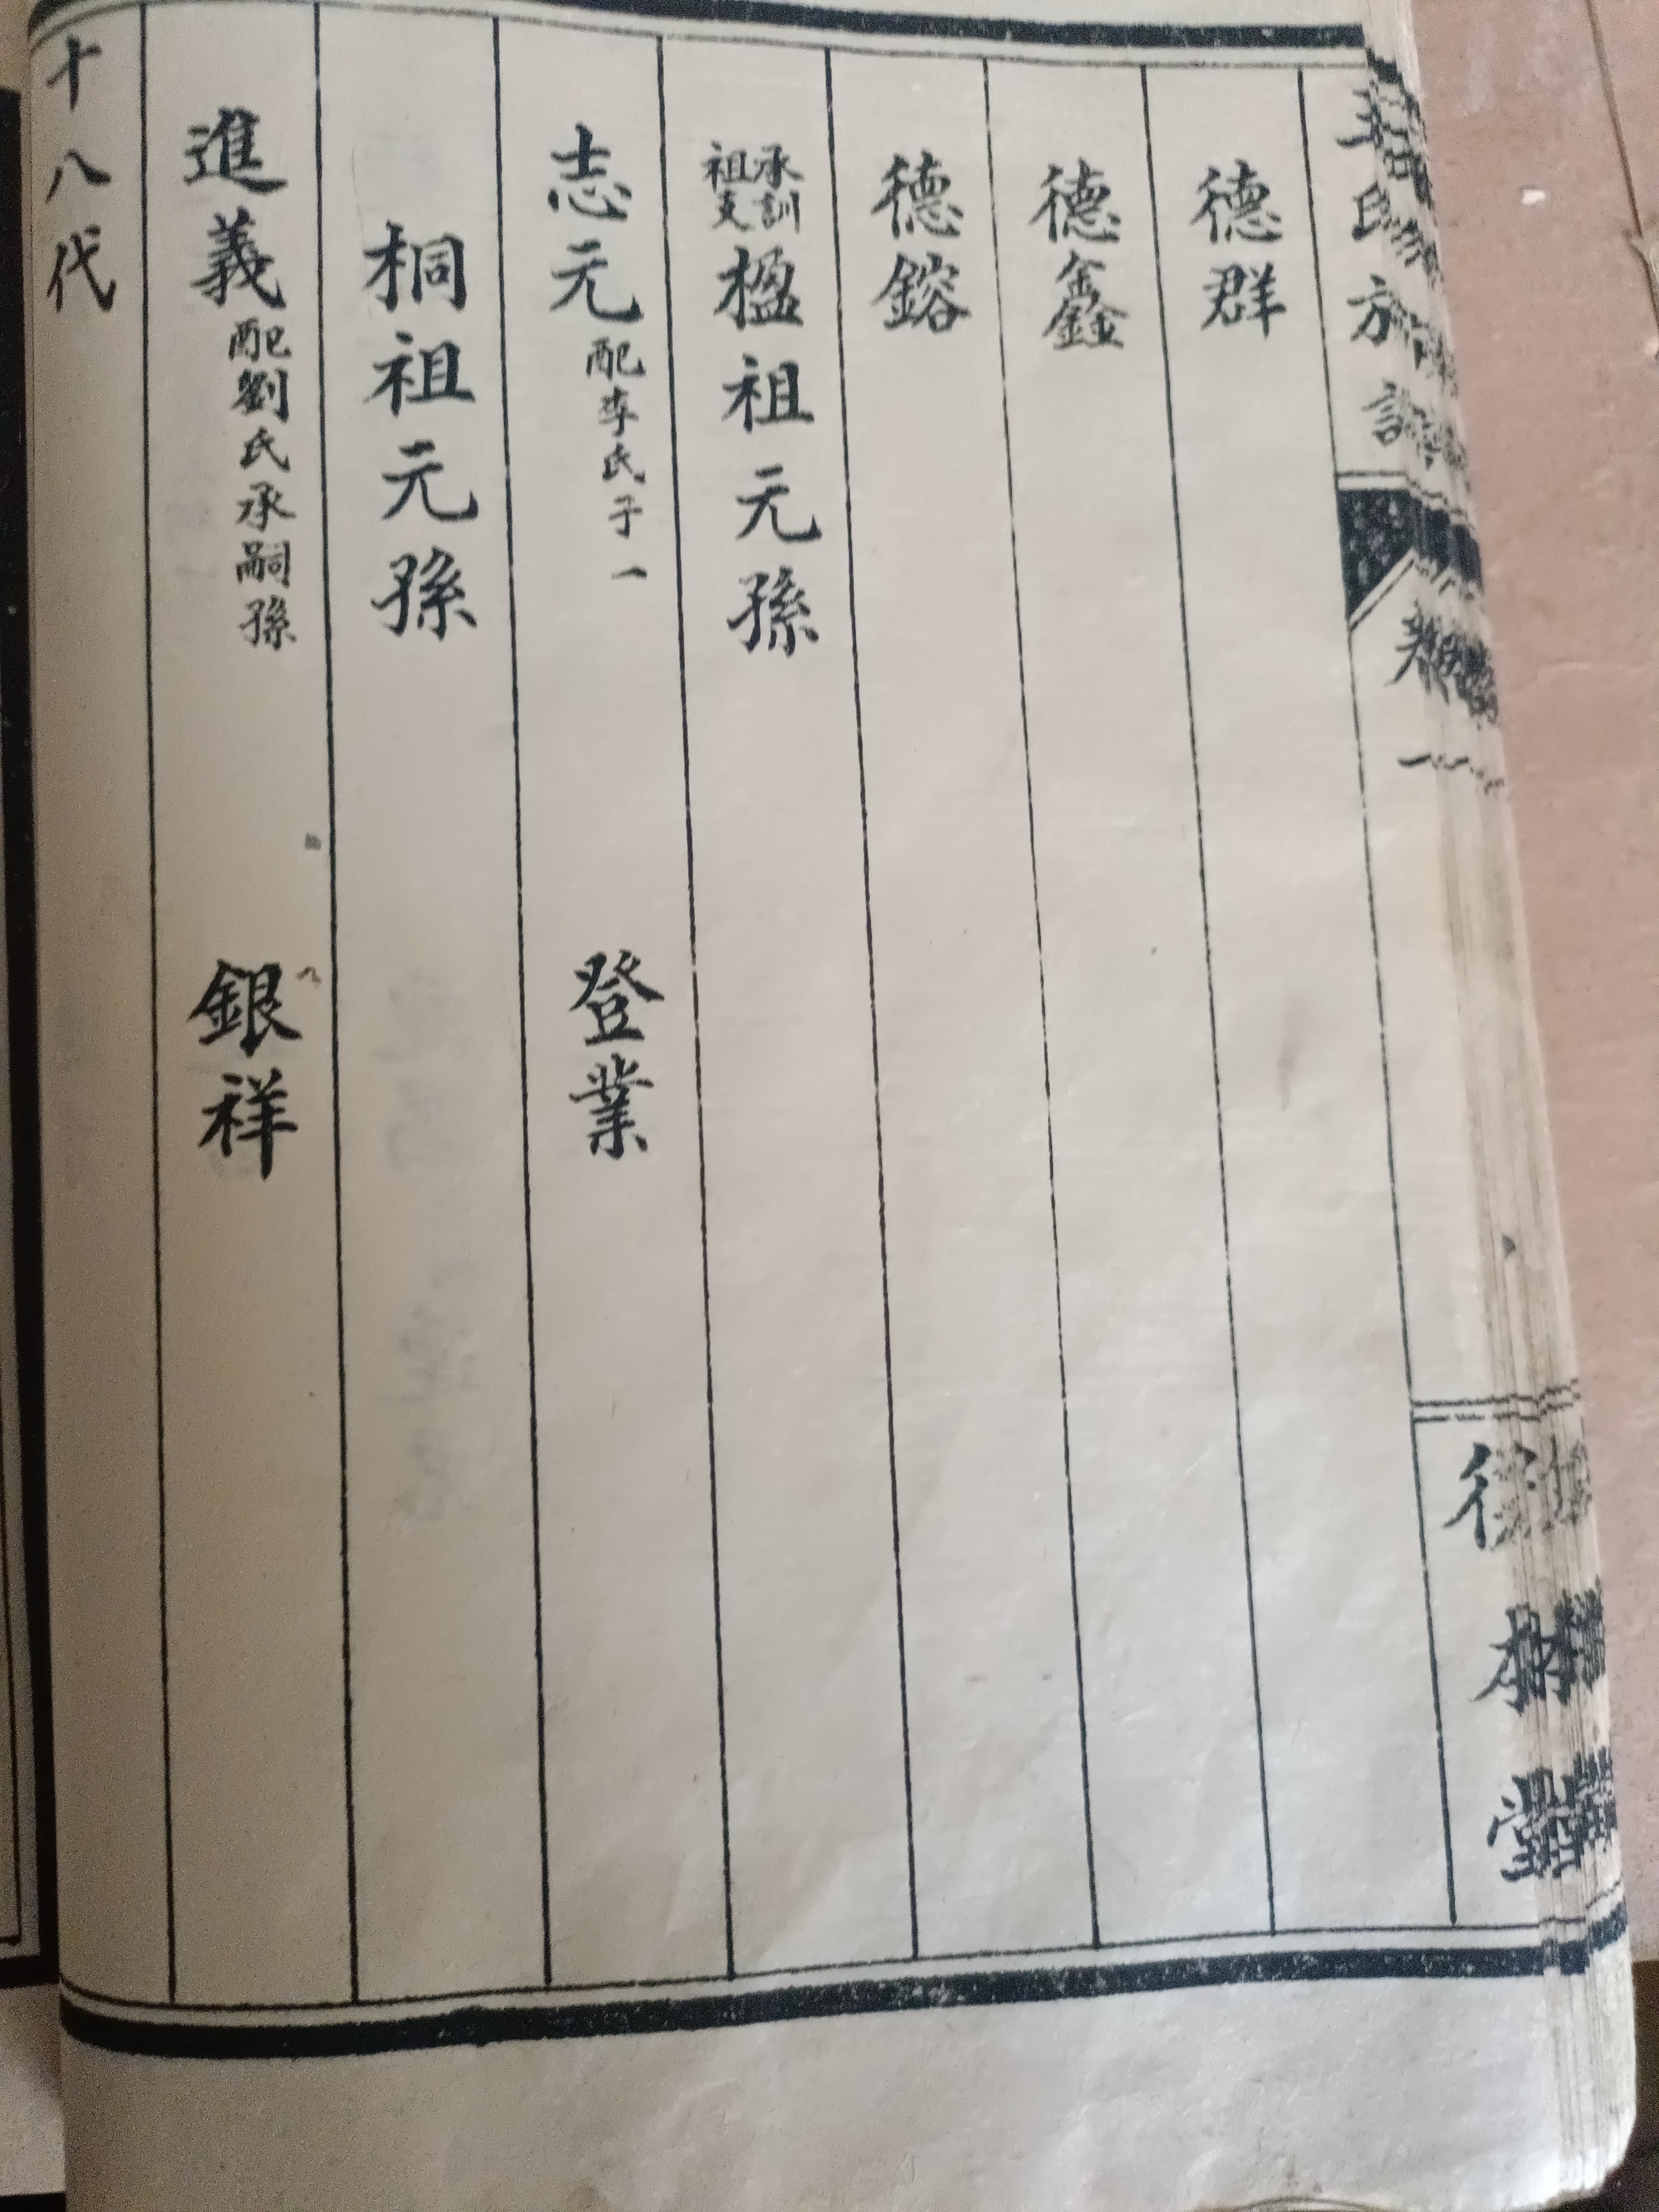 德群
德鑫
德鎔
承訓祖支楹祖元孫
志元配李氏子一
登業
桐祖元孫
進義配劉氏承嗣孫
銀祥
十八代